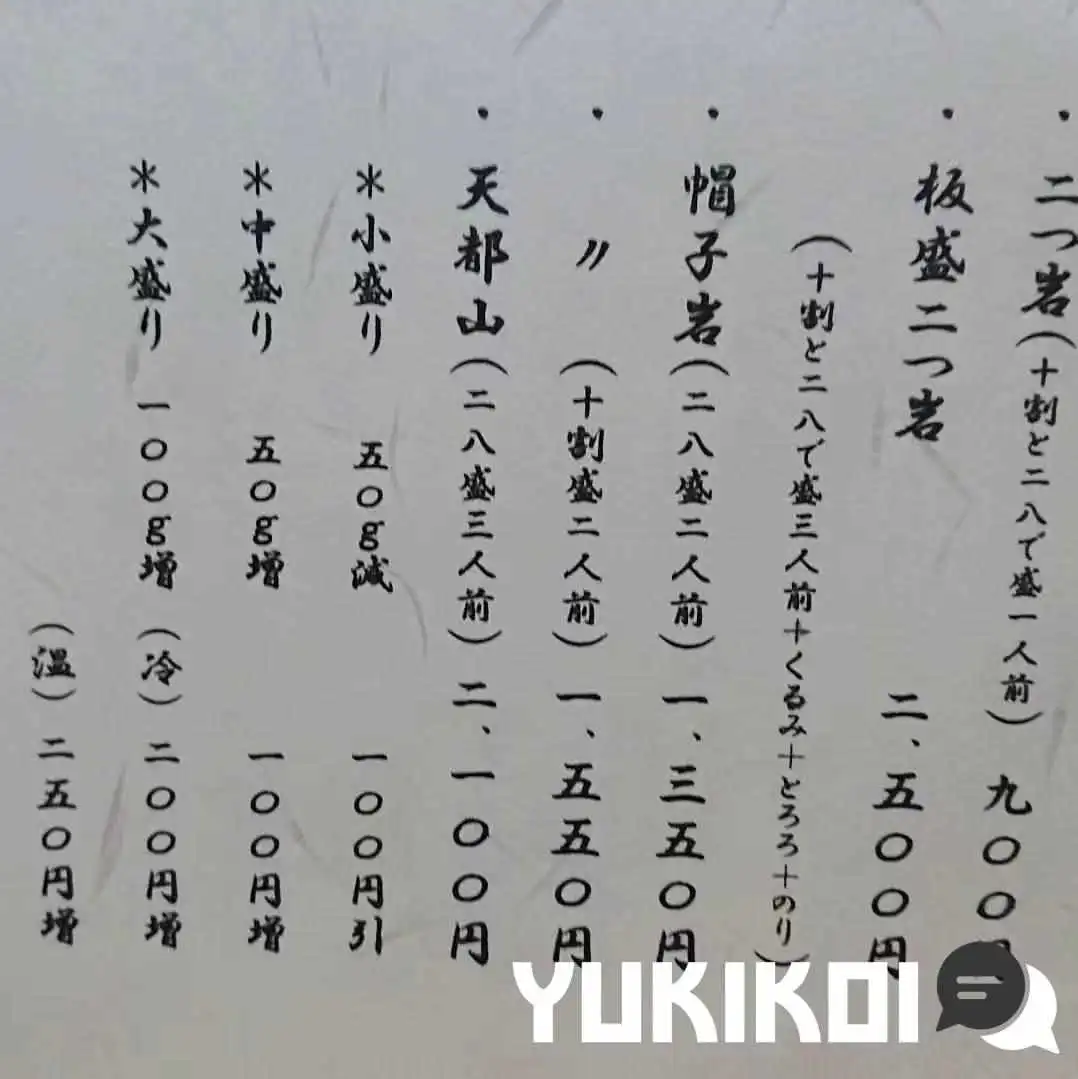 二つ岩(十割と二八で盛一人前) 九〇〇円
・板盛二つ岩 二、五〇〇円
(十割と二八で盛三人前+くるみ+とろろ+のり)
・帽子岩(二八盛二人前) 一、三五〇円
・〃 (十割盛二人前) 一、五五〇円
・天都山(二八盛三人前) 二、一〇〇円
*小盛り 五〇g減 一〇〇円引
*中盛り 五〇g増 一〇〇円増
*大盛り 一〇〇g増 (冷) 二〇〇円増
(温) 二五〇円増
YUKIKOI